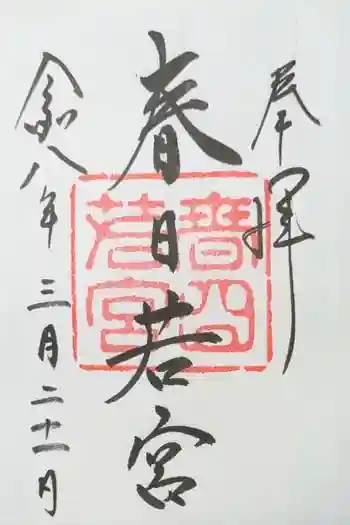 奉拝
春日若宮
令和八年三月二十一日
春日若宮